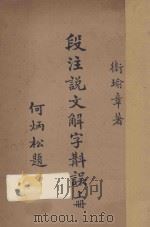 衛瑜章著
段注說文解字斠誤 上册
何炳松題